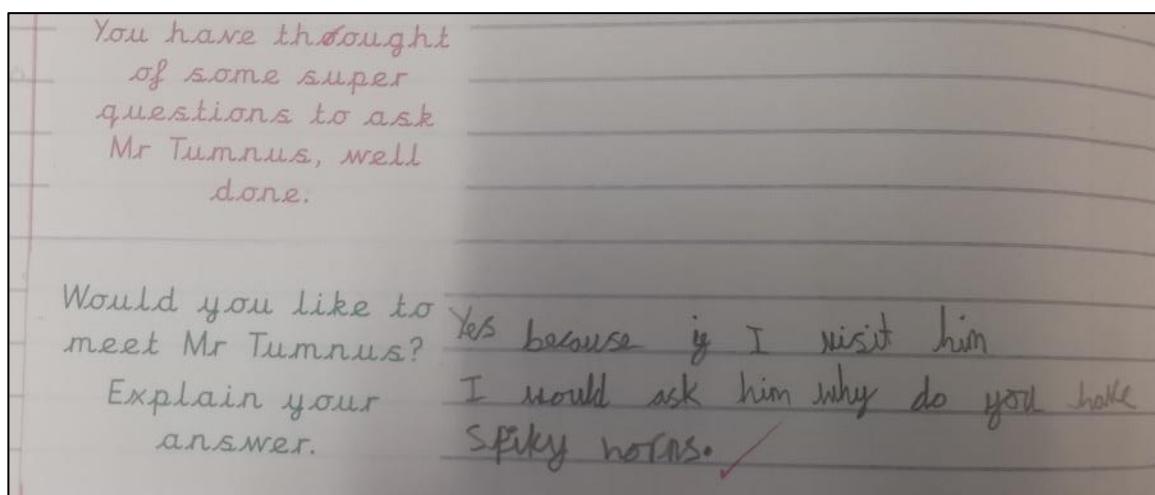 You have thought
of some super
questions to ask
Mr Tumnus, well
done.
Would you like to
meet Mr Tumnus?
Explain your
answer.
Yes because if I visit him
I would ask him why do you have
spiky horns.